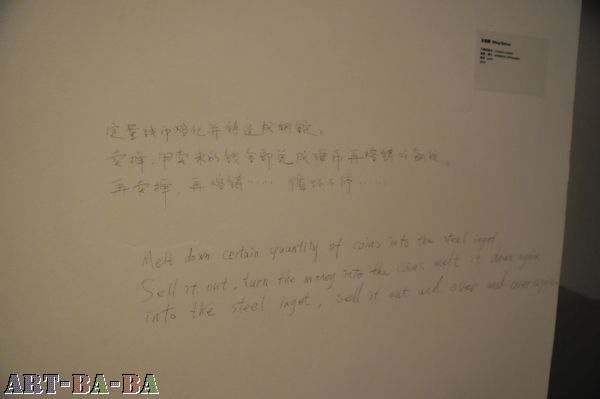 定量钱币熔化并铸造成钢锭。
卖掉，用卖来的钱全部兑成硬币再熔铸成钢锭。
再卖掉，再熔铸…… 循环不停……
Melt down certain quantity of coins into the steel ingot
Sell it out, turn the money into the coins melt it down again
into the steel ingot, sell it out and over and over again.
ART-BA-BA